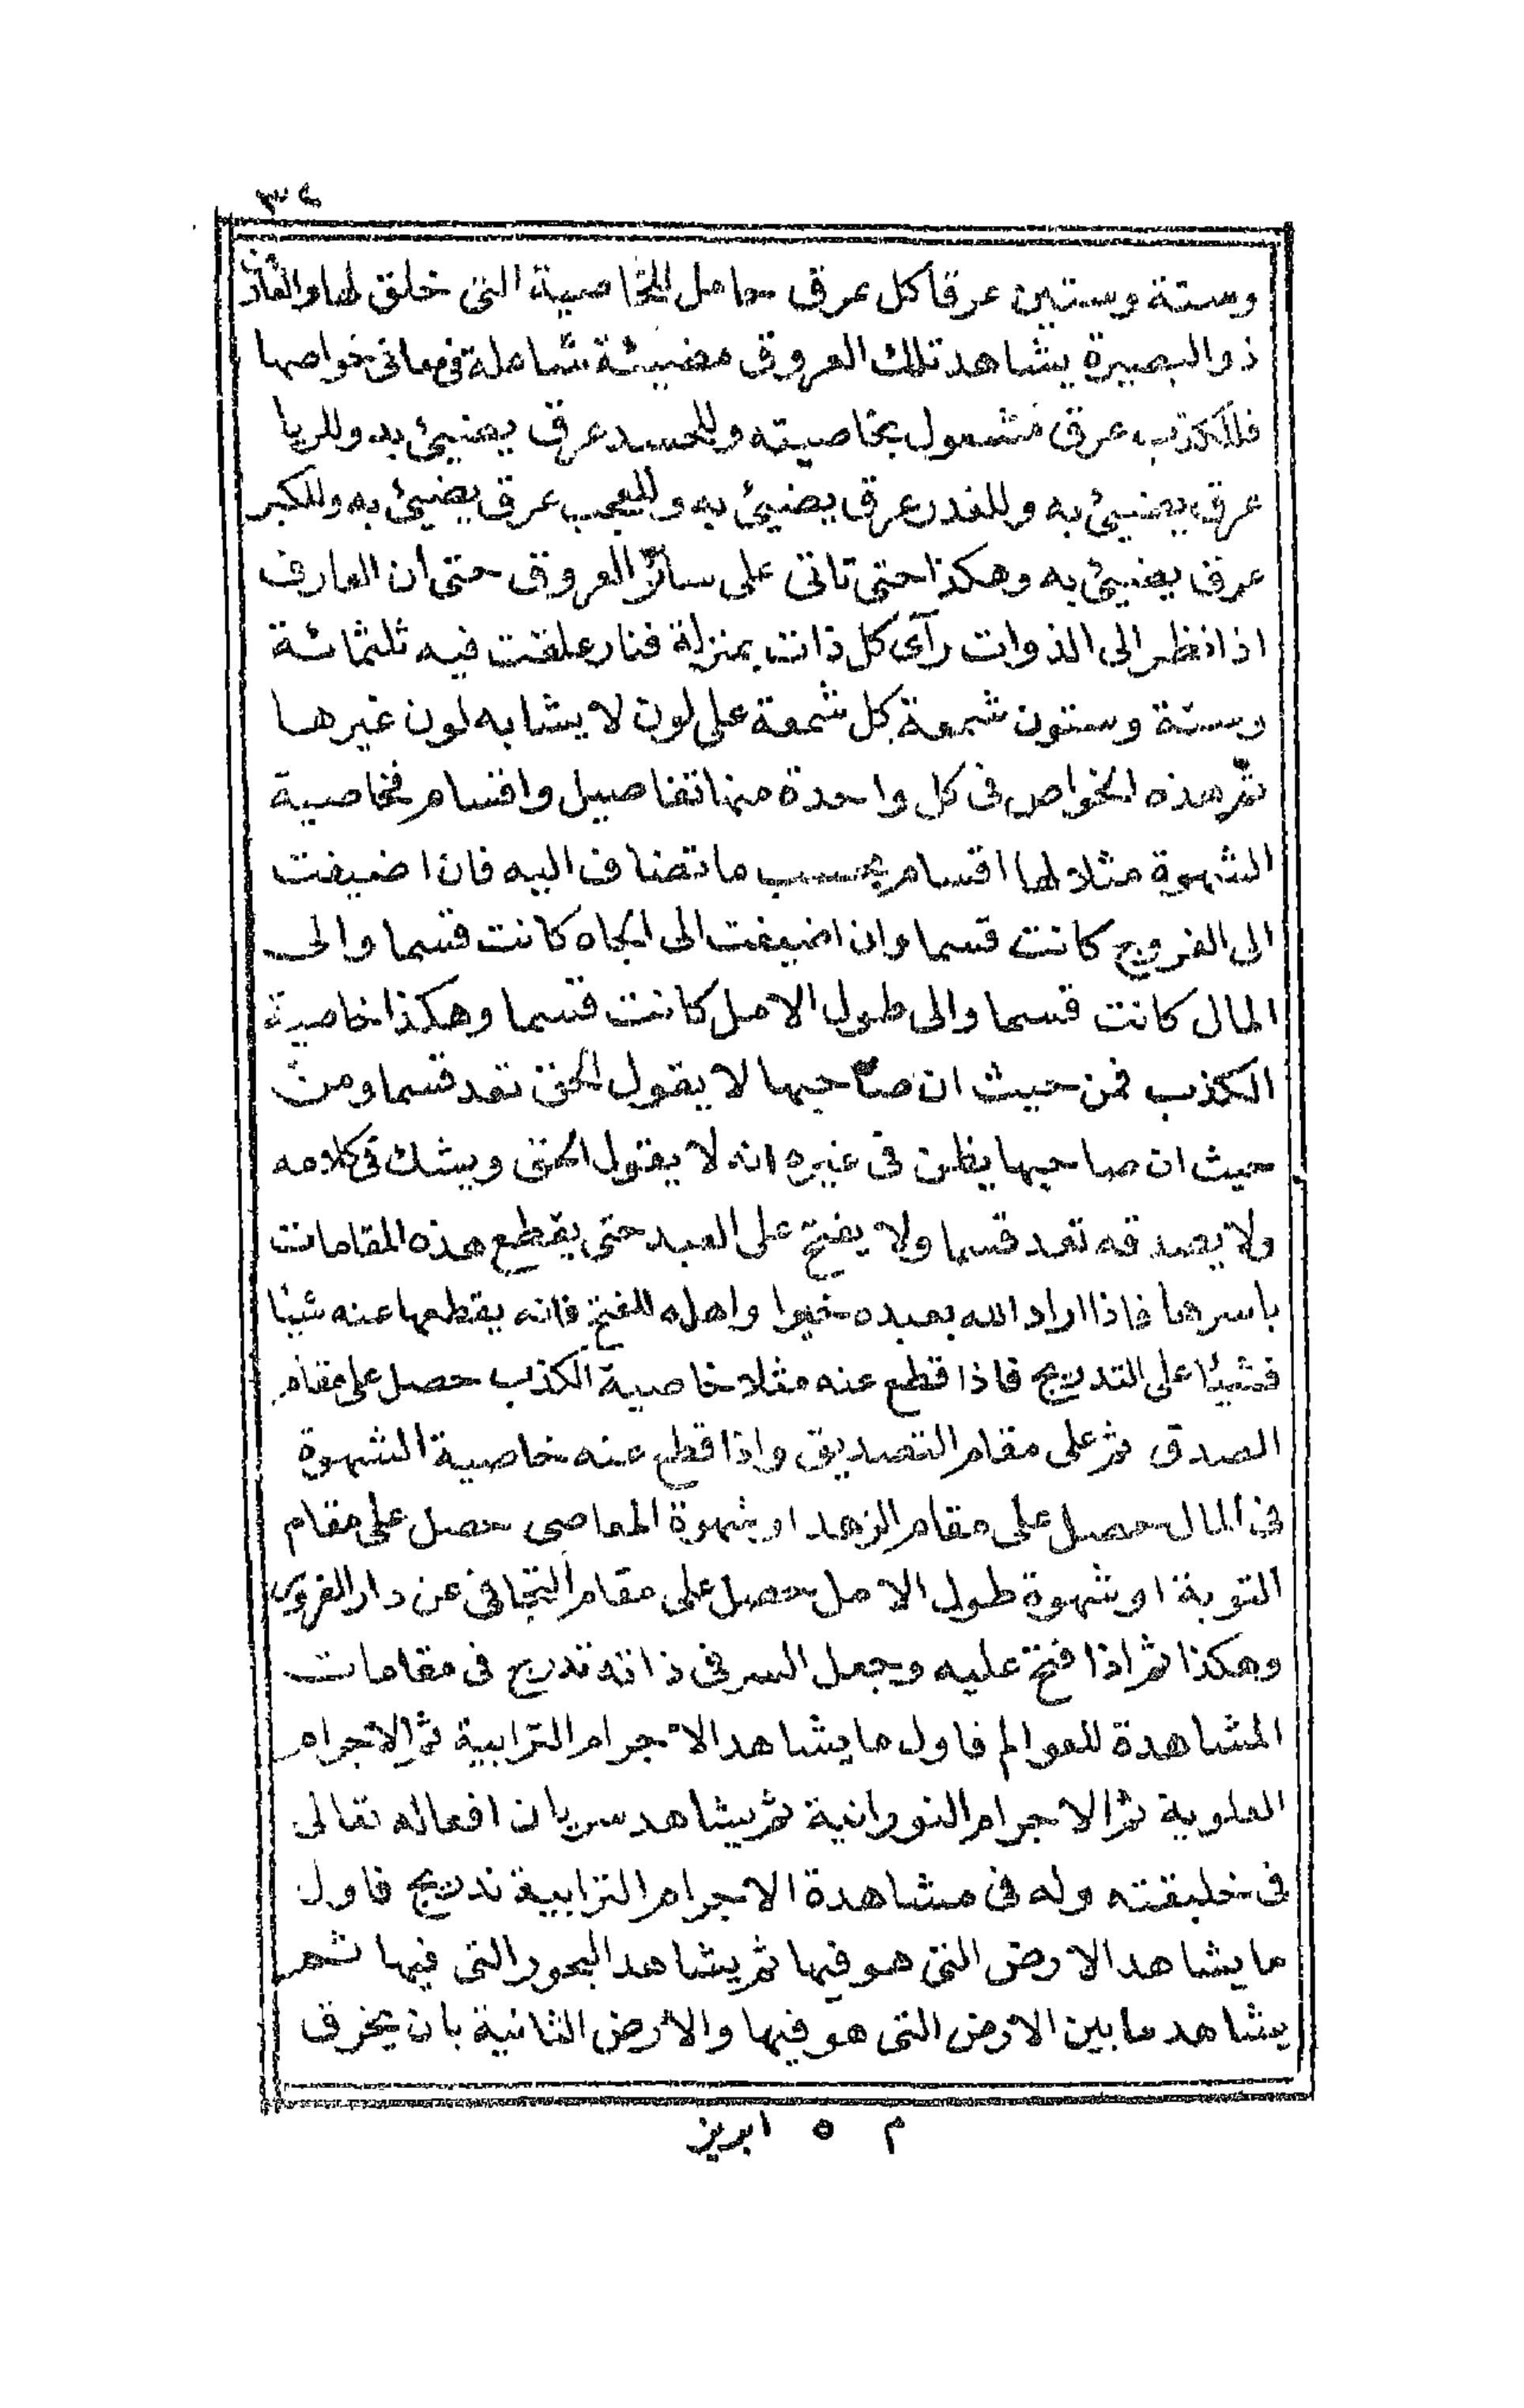 ٣٤
وستة وستين عرقا كل عرق حامل للخاصية التي خلق لها والعارف
ذو البصيرة يشاهد تلك العروق مضيئة شاملة في معاني خواصها
فللكذب عرق مشعول بخاصيته وللحسد عرق يضيئ به وللريا
عرق يضيئ به وللغدر عرق يضيئ به وللعجب عرق يضيئ به وللكبر
عرق يضيئ به وهكذا حتى تاتى على سائر العروق حتى ان العارف
اذا نظر الى الذوات رآى كل ذات بمنزلة فنار علقت فيه ثلثمائة
وستة وستون شمعة كل شمعة على لون لا يشابه لون غيرها
ثم هذه الخواص فى كل واحدة منها تفاصيل واقسام فخاصية
الشهوة مثلا لها اقسام بحسب ما تضاف اليه فان اضيفت
الى الفروج كانت قسما وان اضيفت الى الجاه كانت قسما والى
المال كانت قسما والى طول الامل كانت قسما وهكذا خاصية
الكذب فمن حيث ان صاحبها لا يقول الحق تعد قسما ومن
حيث ان صاحبها يظن فى غيره انه لا يقول الحق ويشك فى كلامه
ولا يصدقه تعد قسما ولا يفتح على العبد حتى يقطع هذه المقامات
باسرها فاذا اراد الله بعبده خيرا واهله للفتح فانه يقطعها عنه شيئا
فشيئا على التدريج فاذا قطع عنه مثلا خاصية الكذب حصل على مقام
الصدق ثم على مقام التصديق واذا قطع عنه خاصية الشهوة
فى المال حصل على مقام الزهد او شهوة المعاصى حصل على مقام
التوبة او شهوة طول الامل حصل على مقام التجافى عن دار الغرور
وهكذا ثم اذا فتح عليه وجعل السر فى ذاته تدريج فى مقامات
المشاهدة للعوالم فاول ما يشاهد الاجرام الترابية ثم الاجرام
العلوية ثم الاجرام النورانية ثم يشاهد سريان افعاله تعالى
فى خليقته وله فى مشاهدة الاجرام الترابية تدريج فاول
ما يشاهد الارض التى هو فيها ثم يشاهد البحور التى فيها ثم
يشاهد ما بين الارض التى هو فيها والارض الثانية بان يخرق
م ٥ ابريز